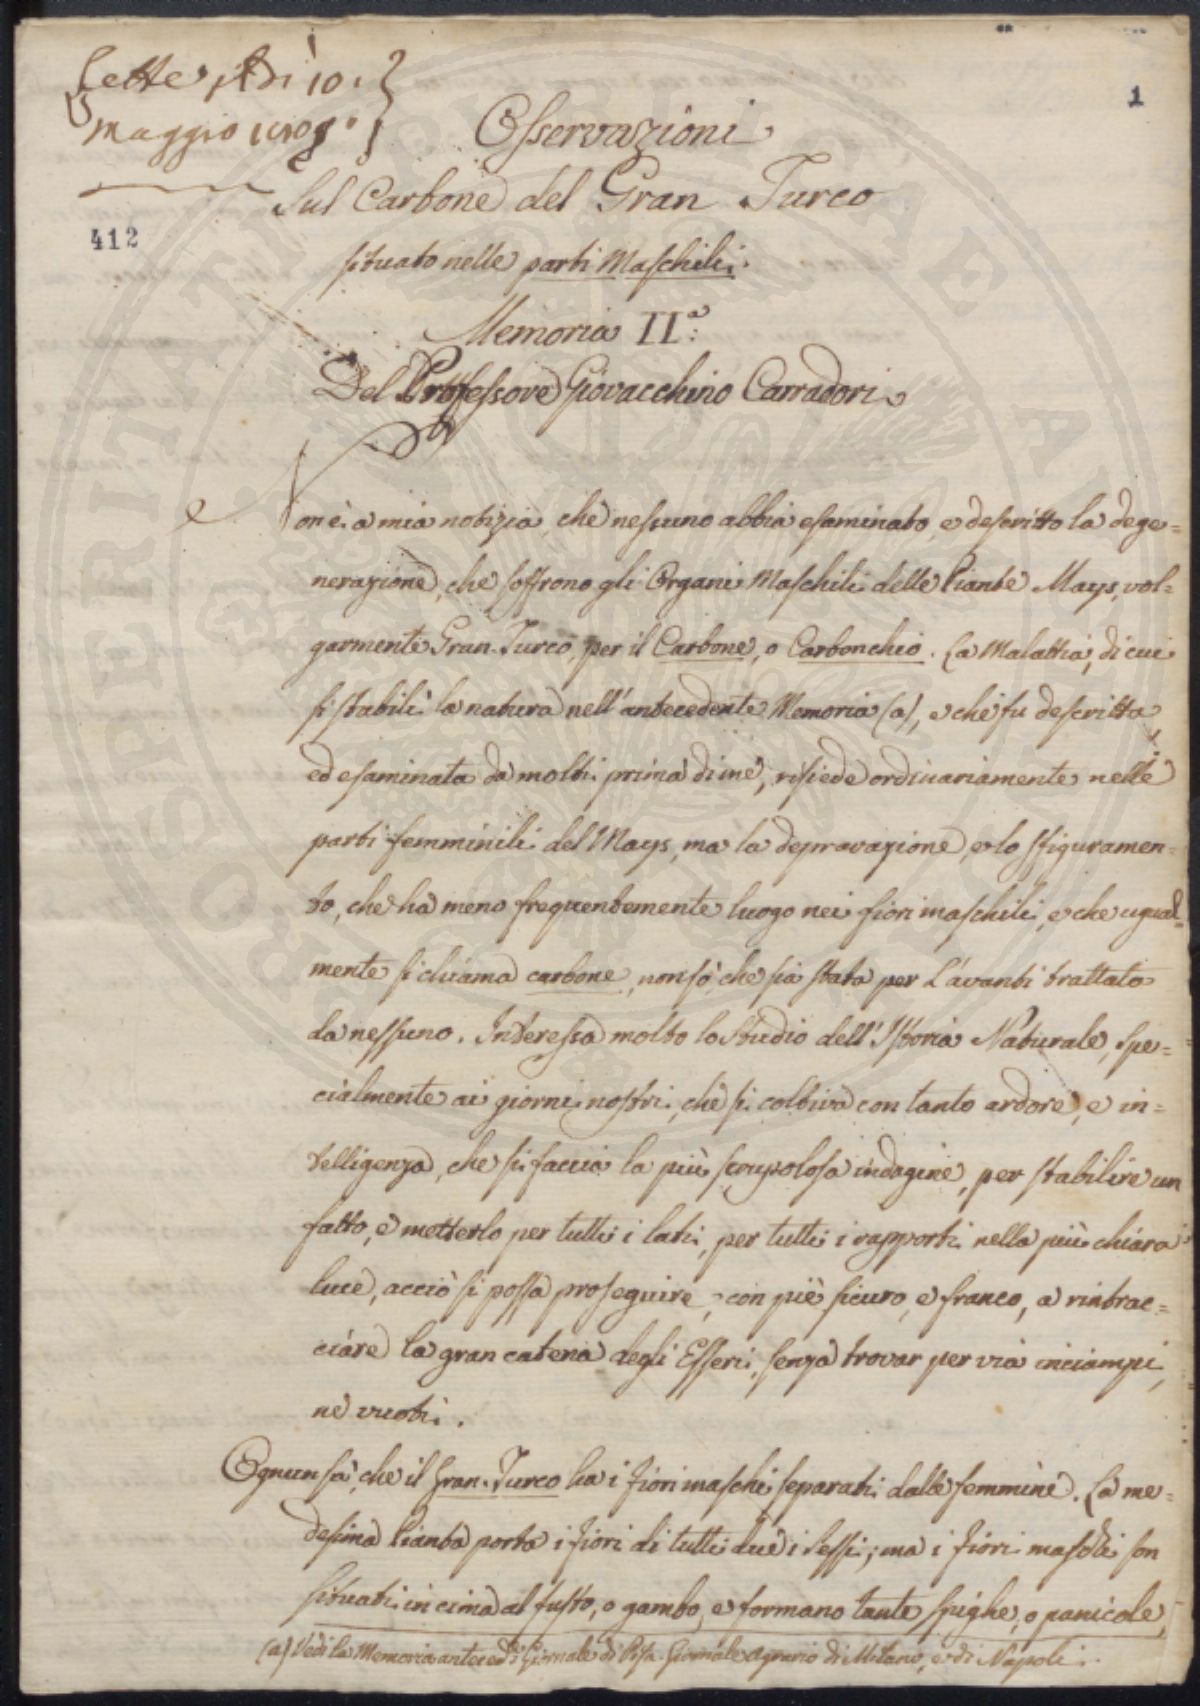 Lette adì 10.
Maggio 1809
1
Osservazioni
Sul Carbone del Gran Turco
412
situato nelle parti Maschili.
Memoria II.a
Del Professore Giovacchino Carradori
Non è a mia notizia, che nessuno abbia esaminato, e descritto la dege=
nerazione, che soffrono gli Organi Maschili delle Piante Mays, vol=
garmente Gran-Turco, per il Carbone, o Carbonchio. La Malattia, di cui
si stabilì la natura nell'antecedente Memoria (a), e che fu descritta
ed esaminata da molti prima di me, risiede ordinariamente nelle
parti femminili del Mays, ma la depravazione, e lo sfiguramen=
to, che ha meno frequentemente luogo nei fiori maschili, e che ugual=
mente si chiama carbone, non so, che sia stata per L'avanti trattato
da nessuno. Interessa molto lo Studio dell'Istoria Naturale, Spe=
cialmente ai giorni nostri, che si coltiva con tanto ardore, e in=
telligenza, che si faccia la più scrupolosa indagine, per stabilire un
fatto, e metterlo per tutti i lati, per tutti i rapporti nella più chiara
luce, acciò si possa proseguire, con piè sicuro, e franco, a rintrac=
ciare la gran catena degli Esseri, senza trovar per via inciampi,
nè vuoti.
Ognun sa, che il Gran-Turco ha i fiori maschi separati dalle femmine. La me=
desima Pianta porta i fiori di tutti due i Sessi; ma i fiori maschi son
situati in cima al fusto, o gambo, e formano tante Spighe, o panicole,
(a) Vedi la Memoria anteced. Giornale di Pisa. Giornale Agrario di Milano, e di Napoli.